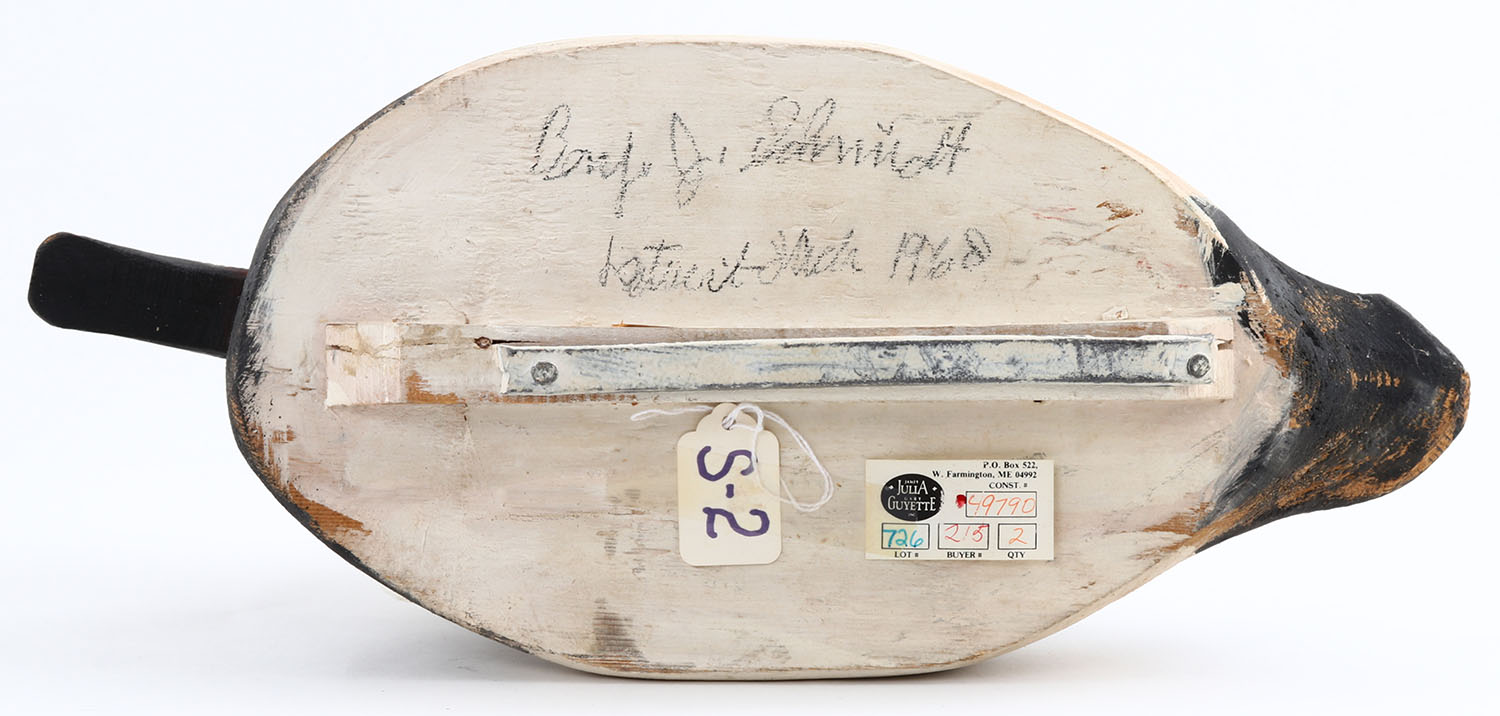 Benj. J. Schmidt
Detroit Mich 1968
S-2
P.O. Box 522,
W. Farmington, ME 04992
CONST. #
JAMES
JULIA
GARY
GUYETTE
INC
49790
726
215
2
LOT #
BUYER #
QTY